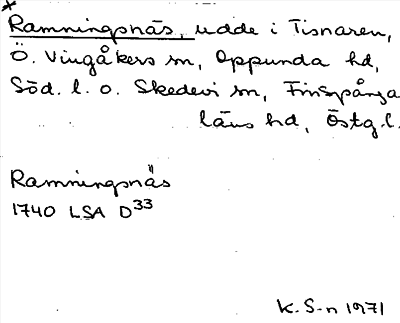 *
Ramningsnäs, udde i Tisnaren,
Ö. Vingåkers sn, Oppunda hd,
Söd. l. o. Skedevi sn, Finspånga
läns hd, Östg. l.
Ramningsnäs
1740 LSA D³³
K. S-n 1971